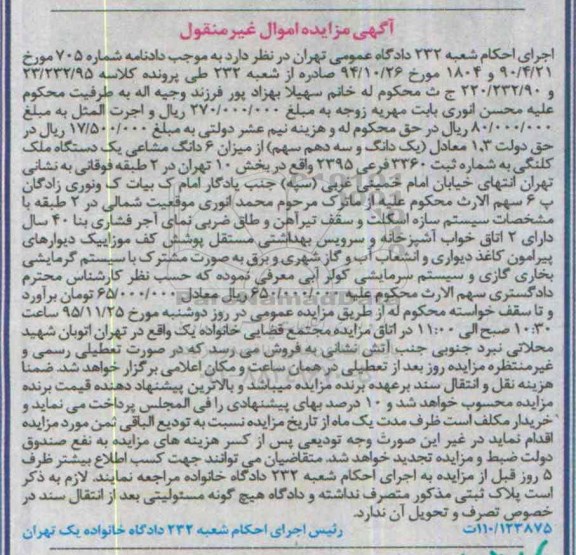 آگهی مزایده اموال غیر منقول
اجرای احکام شعبه ۲۳۲ دادگاه عمومی تهران در نظر دارد به موجب دادنامه شماره ۷۰۵ مورخ
۹۰/۴/۲۱ و ۱۸۰۴ مورخ ۹۴/۱۰/۲۶ صادره از شعبه ۲۳۲ طی پرونده کلاسه ۲۳/۲۳۲/۹۵
و ۲۲۰/۲۳۲/۹۰ ج ث محکوم له خانم سهیلا بهزاد پور فرزند وجیه اله به طرفیت محکوم
علیه محسن انوری بابت مهریه زوجه به مبلغ ۲۷۰/۰۰۰/۰۰۰ ریال و اجرت المثل به مبلغ
۸۰/۰۰۰/۰۰۰ ریال در حق محکوم له و هزینه نیم عشر دولتی به مبلغ ۱۷/۵۰۰/۰۰۰ ریال در
حق دولت ۱,۳ معادل (یک دانگ و سه دهم سهم) از میزان ۶ دانگ مشاعی یک دستگاه ملک
کلنگی به شماره ثبت ۳۳۶۰ فرعی ۲۳۹۵ واقع در بخش ۱۰ تهران در ۲ طبقه فوقانی به نشانی
تهران انتهای خیابان امام خمینی غربی (سپه) جنب پادگار امام ک بیات ک ونوری زادگان
پ ۶ سهم الارث محکوم علیه از ماترک مرحوم محمد انوری موقعیت شمالی در ۲ طبقه با
مشخصات سیستم سازه اسکلت و سقف تیرآهن و طاق ضربی نمای آجر فشاری بنا ۴۰ سال
دارای ۲ اتاق خواب آشپزخانه و سرویس بهداشتی مستقل پوشش کف موزاییک دیوارهای
پیرامون کاغذ دیواری و انشعاب آب و گاز شهری و برق به صورت مشترک با سیستم گرمایشی
بخاری گازی و سیستم سرمایشی کولر آبی معرفی نموده که حسب نظر کارشناس محترم
دادگستری سهم الارث محکوم علیه ۶۵۰/۰۰۰/۰۰۰ ریال معادل ۶۵/۰۰۰/۰۰۰ تومان برآورد
و تا سقف خواسته محکوم له از طریق مزایده عمومی در روز دوشنبه مورخ ۹۵/۱۱/۲۵ ساعت
۱۰:۳۰ صبح الی ۱۱:۰۰ در اتاق مزایده مجتمع قضایی خانواده یک واقع در تهران اتوبان شهید
محلاتی نبرد جنوبی جنب آتش نشانی به فروش می رسد که در صورت تعطیلی رسمی و
غیر منتظره مزایده روز بعد از تعطیلی در همان ساعت و مکان اعلامی برگزار خواهد شد. ضمنا
هزینه نقل و انتقال سند بر عهده برنده مزایده میباشد و بالاترین پیشنهاد دهنده قیمت برنده
مزایده محسوب خواهد شد و ۱۰ درصد بهای پیشنهادی را فی المجلس پرداخت می نماید و
خریدار مکلف است ظرف مدت یک ماه از تاریخ مزایده نسبت به تودیع الباقی ثمن مورد مزایده
اقدام نماید در غیر این صورت وجه تودیعی پس از کسر هزینه های مزایده به نفع صندوق
دولت ضبط و مزایده تجدید خواهد شد. متقاضیان می توانند جهت کسب اطلاع بیشتر ظرف
۵ روز قبل از مزایده به اجرای احکام شعبه ۲۳۲ دادگاه خانواده مراجعه نمایند. لازم به ذکر
است پلاک ثبتی مذکور متصرف نداشته و دادگاه هیچ گونه مسئولیتی بعد از انتقال سند در
خصوص تصرف و تحویل آن ندارد.
۱۱۰/۱۲۳۸۷۵ت رئیس اجرای احکام شعبه ۲۳۲ دادگاه خانواده یک تهران